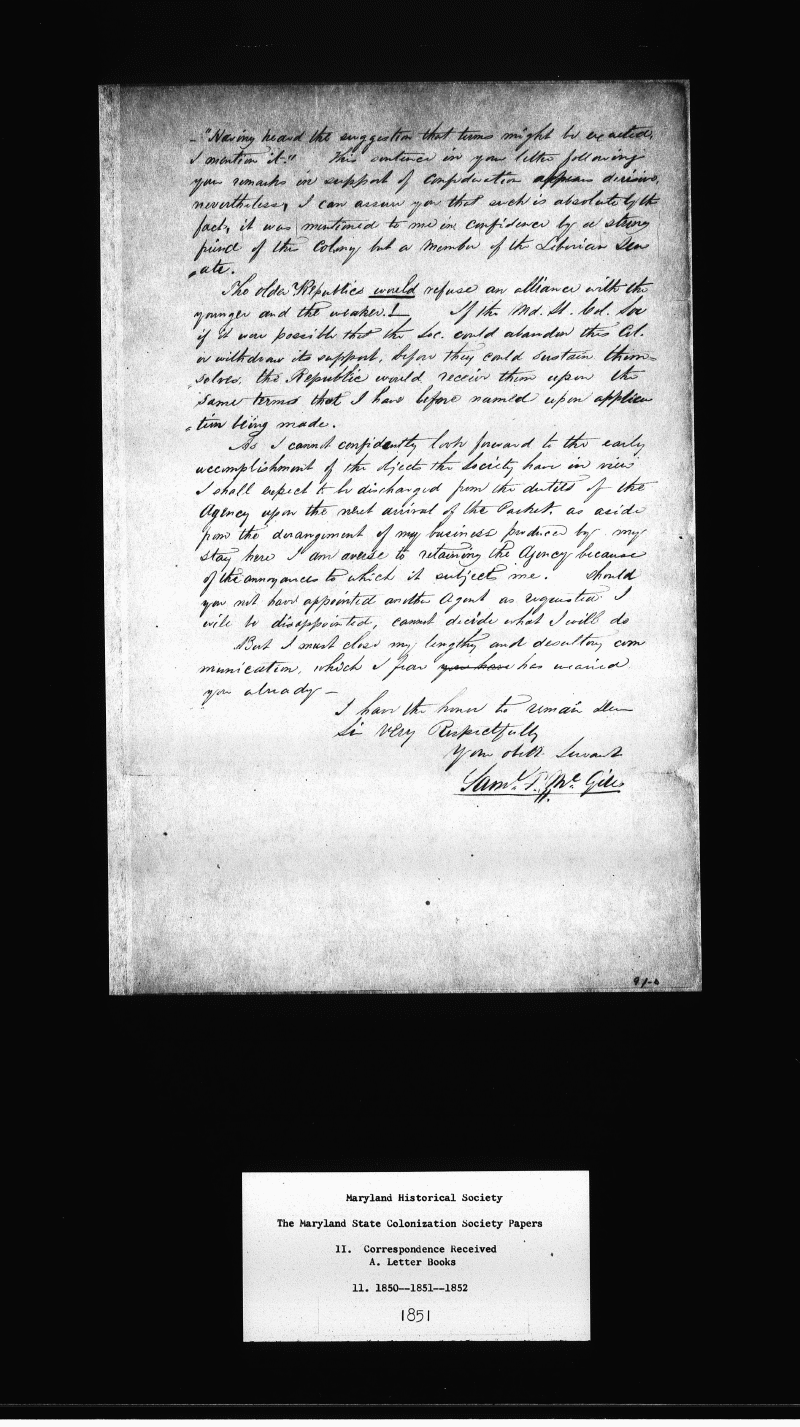 – "Having heard the suggestion that terms might be exacted,
I mention it." This sentence in your letter following
your remarks in support of confederation appears derisive,
nevertheless, I can assure you that such is absolutely the
fact, it was mentioned to me in confidence by a strong
friend of this Colony but a member of the Liberian Sen
ate.
The older Republics would refuse an alliance with the
younger and the weaker! If the Md. St. Col. Soc
if it were possible that the Soc. could abandon this Col.
or withdraw its support, before they could sustain them=
selves, the Republic would receive them upon the
same terms that I have before named upon applica
tion being made.
As I cannot confidently look forward to the early
accomplishment of the objects the Society have in view
I shall expect to be discharged from the duties of the
Agency upon the next arrival of the Packet, as aside
from the derangement of my business produced by my
stay here I am averse to retaining the Agency because
of the annoyances to which it subjects me. Should
you not have appointed another Agent as requested I
will be disappointed, cannot decide what I will do
But I must close my lengthy and desultory com
munication, which I fear you have has wearied
you already –
I have the honor to remain Dear
Sir Very Respectfully
Your obdt. Servant
Saml. F. Mc. Gill
91-a
Maryland Historical Society
The Maryland State Colonization Society Papers
II. Correspondence Received
A. Letter Books
11. 1850--1851--1852
1851